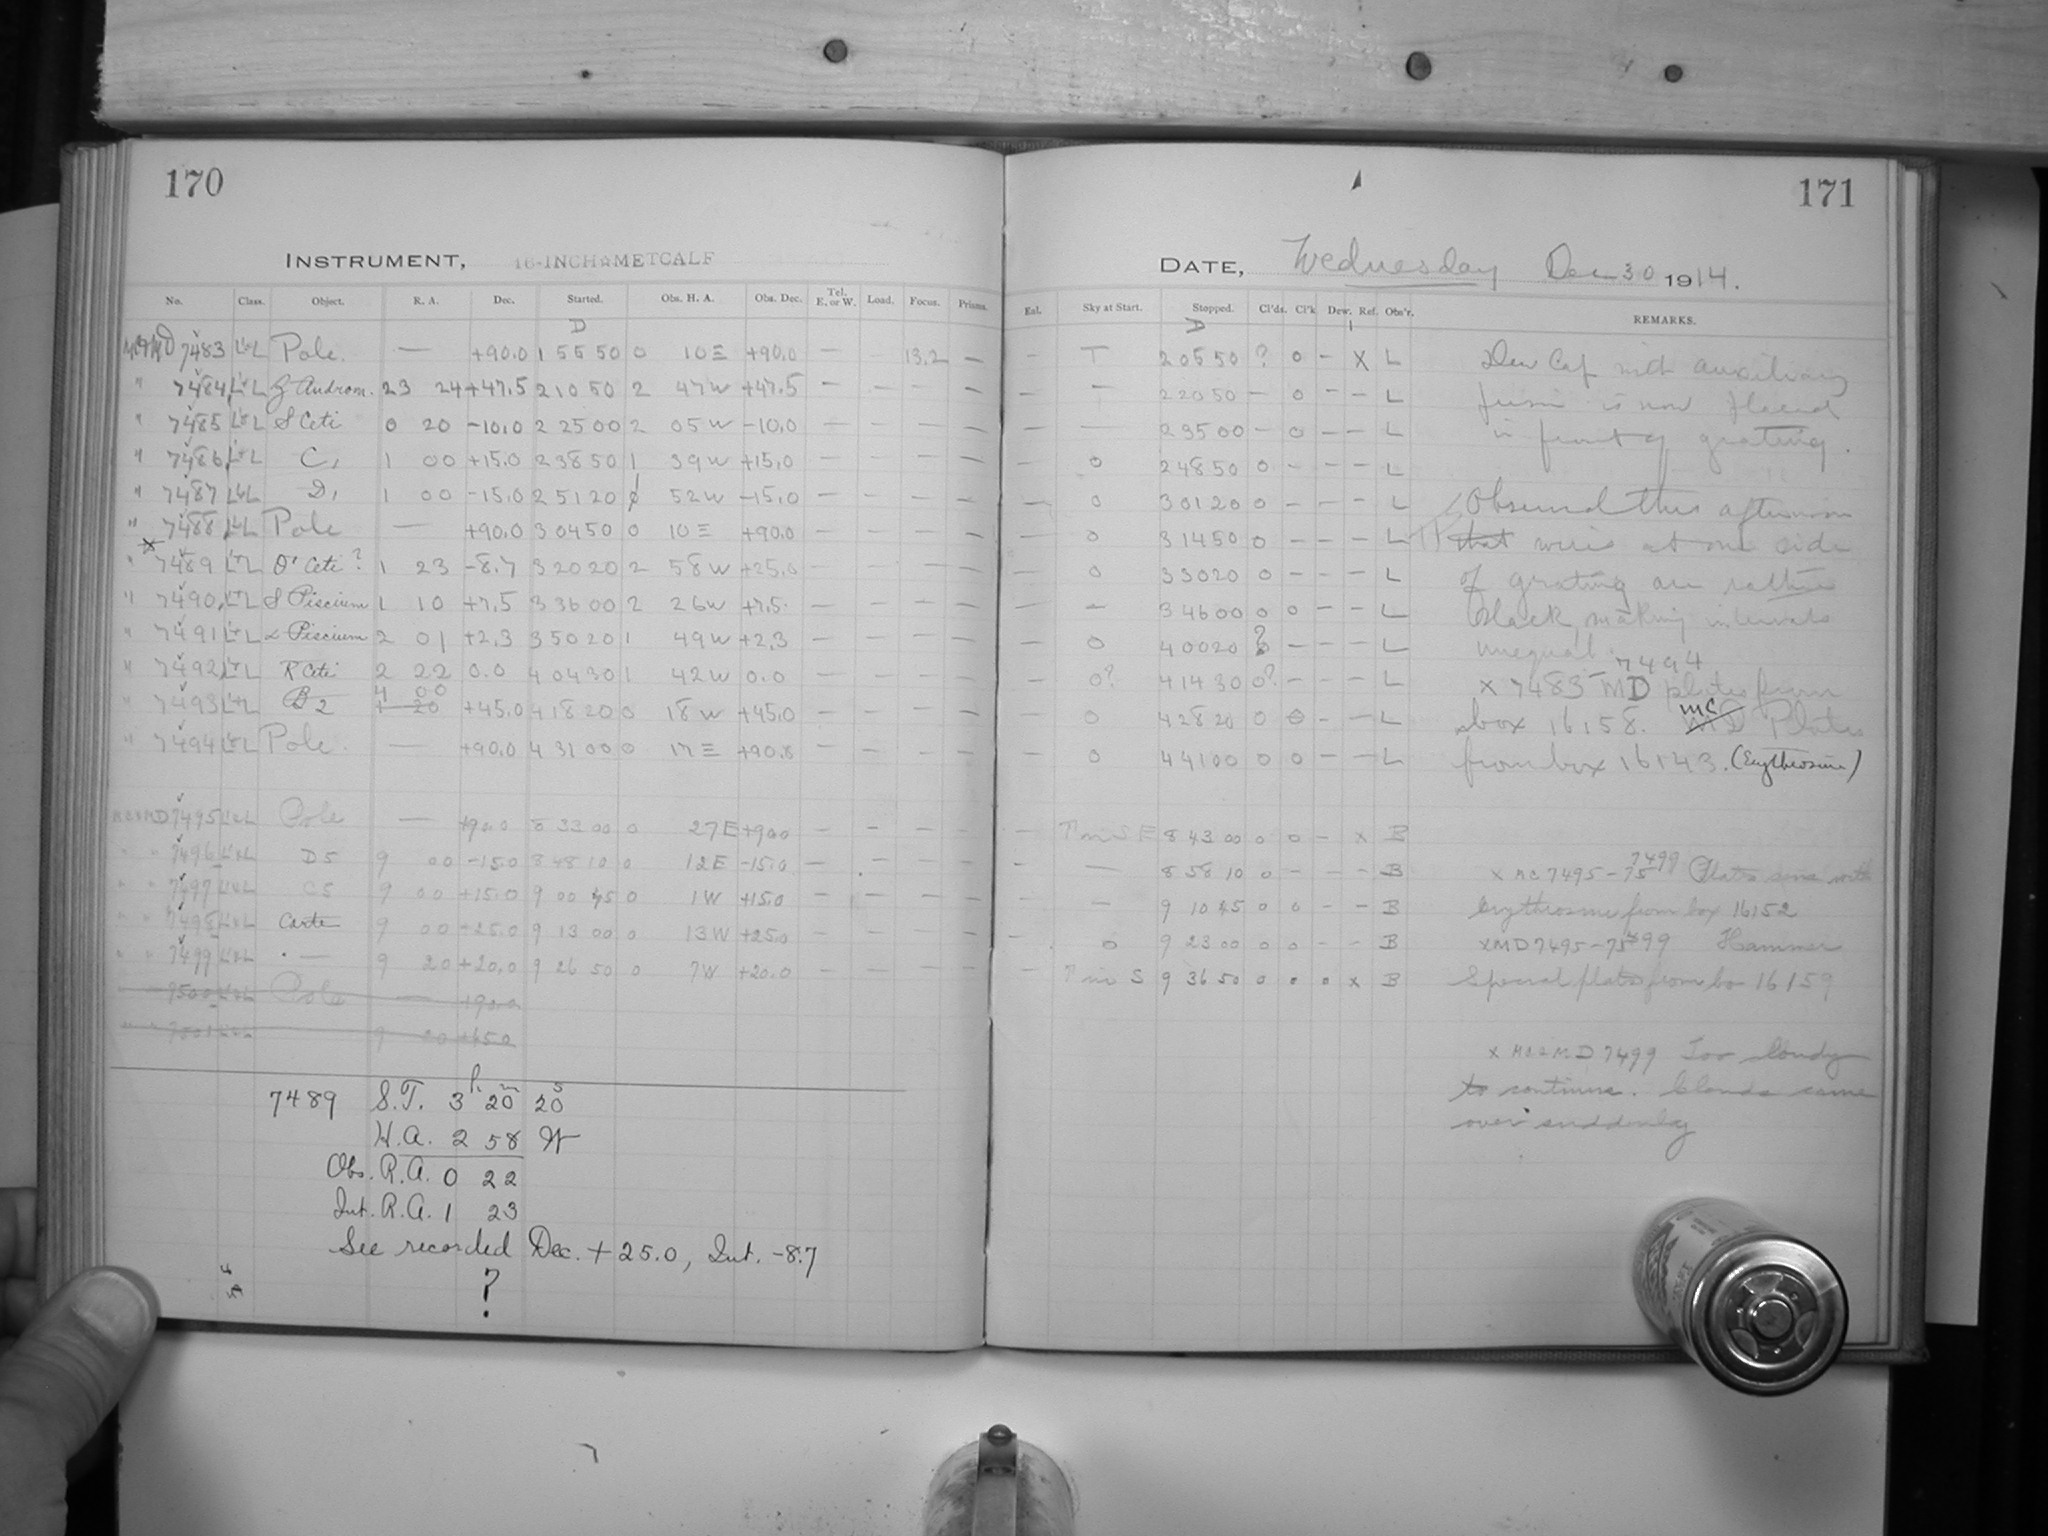 170
INSTRUMENT, 16-INCH METCALF
No. Class. Object. R. A. Dec. Started. Obs. H. A. Obs. Dec. Tel. E. or W. Load. Focus. Prisms.
D
MC & MD 7483 L+L Pole. — +90.0 1 55 50 0 10 E +90.0 — 13.2 —
" 7484 L+L Z Androm. 23 24 +47.5 2 10 50 2 47 W +47.5 — — — —
" 7485 L+L S Ceti 0 20 -10.0 2 25 00 2 05 W -10.0 — — — —
" 7486 L+L C, 1 00 +15.0 2 38 50 1 39 W +15.0 — — — —
" 7487 L+L D, 1 00 -15.0 2 51 20 1 52 W -15.0 — — — —
" 7488 L+L Pole — +90.0 3 04 50 0 10 E +90.0 — — — —
x
" 7489 L+L θ' Ceti ? 1 23 -8.7 3 20 20 2 58 W +25.0 — — — —
" 7490 L+L S Piscium 1 10 +7.5 3 36 00 2 26 W +7.5 — — — —
" 7491 L+L α Piscium 2 01 +2.3 3 50 20 1 49 W +2.3 — — — —
" 7492 L+L R Ceti 2 22 0.0 4 04 30 1 42 W 0.0 — — — —
" 7493 L+L B2 4 00 +45.0 4 18 20 0 18 W +45.0 — — — —
" 7494 L+L Pole. — +90.0 4 31 00 0 17 E +90.0 — — — —
MC & MD 7495 L+L Pole — +90.0 8 33 00 0 27 E +90.0 — — — —
" " 7496 L+L D5 9 00 -15.0 8 48 10 0 12 E -15.0 — — — —
" " 7497 L+L C5 9 00 +15.0 9 00 45 0 1 W +15.0 — — — —
" " 7498 L+L Carte 9 00 +25.0 9 13 00 0 13 W +25.0 — — — —
" " 7499 L+L " — 9 20 +20.0 9 26 50 0 7 W +20.0 — — — —
" 7500 L+L Pole — +90.0
" " 7501 L+L 9 20 +45.0
7489 S.T. 3h 20m 20s
H.A. 2 58 W
Obs. R.A. 0 22
Int. R.A. 1 23
See recorded Dec. +25.0, Int. -8.7
?
171
DATE, Wednesday Dec 30 1914.
Eal. Sky at Start. Stopped. Cl'ds. Cl'k Dew. Ref. Obs'r. REMARKS.
D
— T 2 05 50 ? 0 — X L Dew Cap with auxiliary
— — 2 20 50 — 0 — — L is now placed
— — 2 35 00 — 0 — — L in front of grating.
— 0 2 48 50 0 — — — L
— 0 3 01 20 0 — — — L Observed this afternoon
— 0 3 14 50 0 — — — L that wires at one side
— 0 3 30 20 0 — — — L of grating are rather
— — 3 46 00 0 0 — — L slack, making intervals
— 0 4 00 20 ? — — — L unequal.
— 0? 4 14 30 0? — — — L x 7483 - 7494 MD plates from
— 0 4 28 20 0 0 — — L box 16158. MC Plates
— 0 4 41 00 0 0 — — L from box 16143. (Erythrosine)
— T in S E 8 43 00 0 0 — x B
— — 8 58 10 0 — — — B x MC 7495 - 7499 Plates with
— — 9 10 45 0 0 — — B Erythrosine from box 16152
— 0 9 23 00 0 0 — — B x MD 7495 - 7499 Hammer
— T in S 9 36 50 0 0 0 x B Special plates from bo 16159
x MC & MD 7499 Too Cloudy
to continue. Clouds came
over suddenly